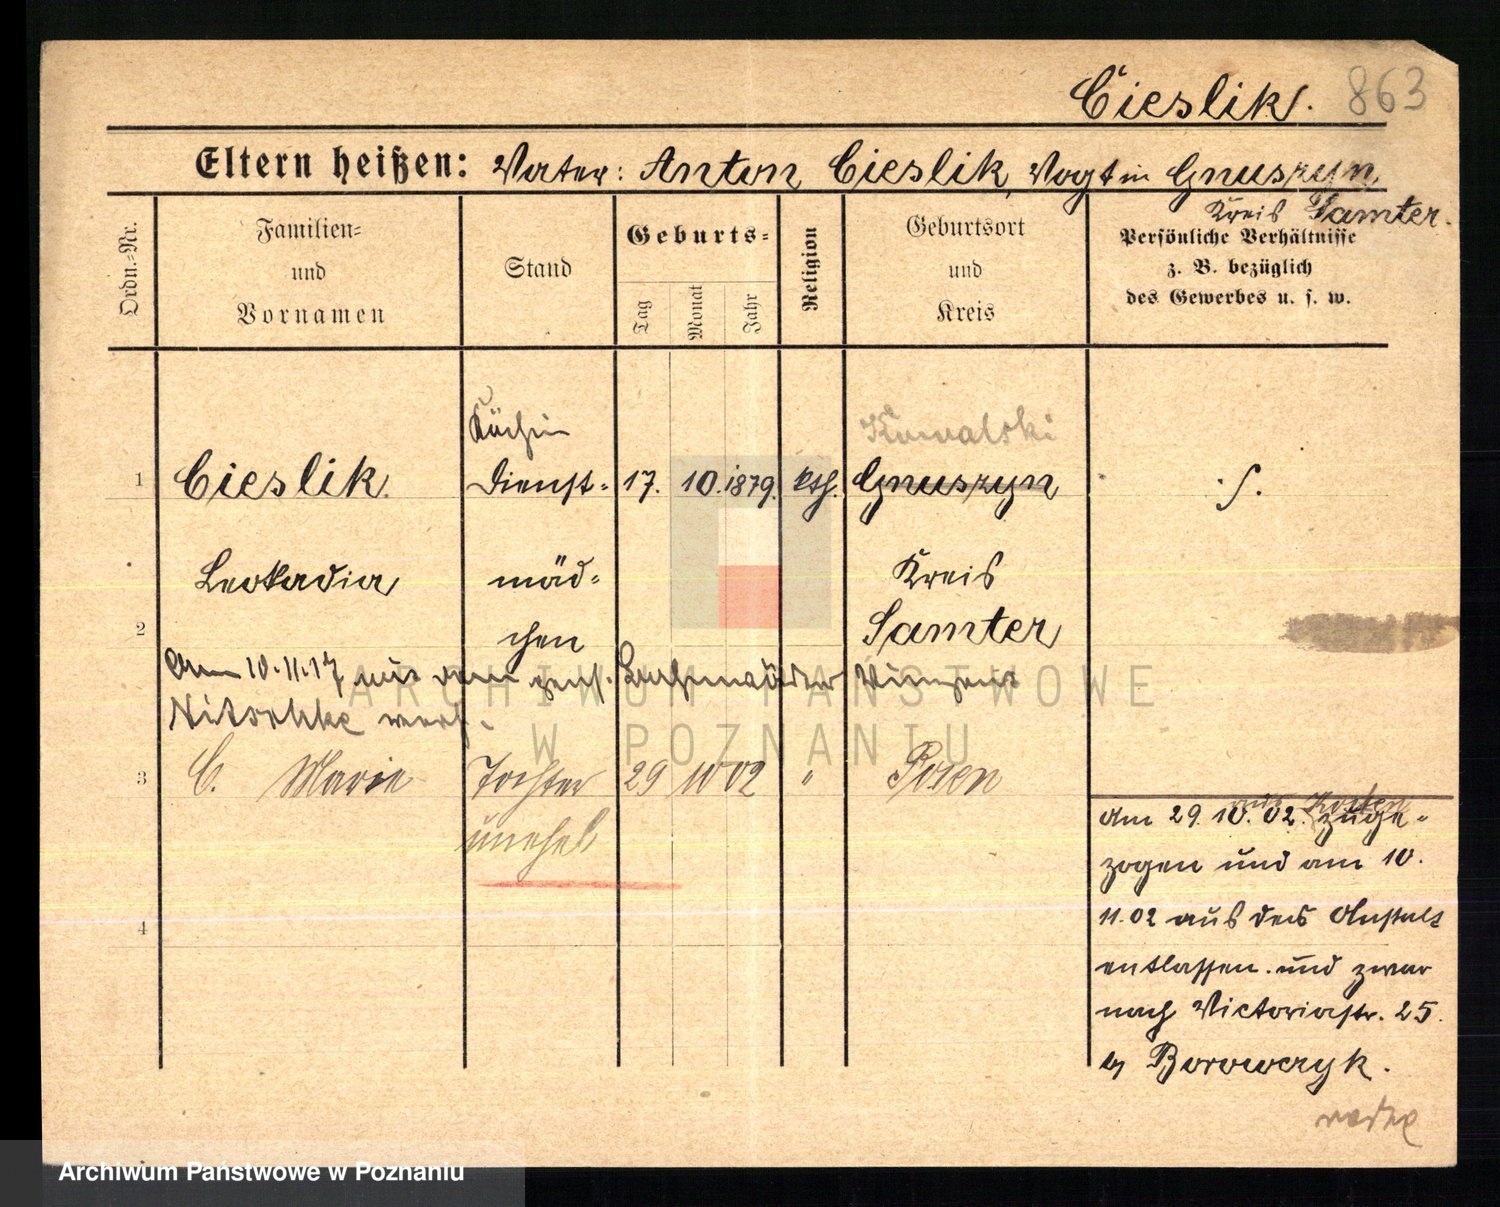 Cieslik. 863
Eltern heißen: Vater: Anton Cieslik, Vogt in Gnuszyn
Kreis Samter.
Ordn.-Nr.
Familien-
und
Vornamen
Stand
Geburts-
Tag
Monat
Jahr
Religion
Geburtsort
und
Kreis
Persönliche Verhältnisse
z. B. bezüglich
des Gewerbes u. s. w.
Köchin Kowalski
1 Cieslik Dienst- 17. 10. 1879. kth. Gnuszyn
Leokadia mäd- Kreis
2 chen Samter
Am 10.11.17 mit dem
Nitschke verh.
3 C. Marie Tochter 29 10 02 " Posen
unehel
4
Am 29. 10. 02. zuge-
zogen und am 10.
11.02 aus der Anstalt
entlassen und zwar
nach Victoriastr. 25.
b/ Borowczyk.
ARCHIWUM PAŃSTWOWE
W POZNANIU
Archiwum Państwowe w Poznaniu